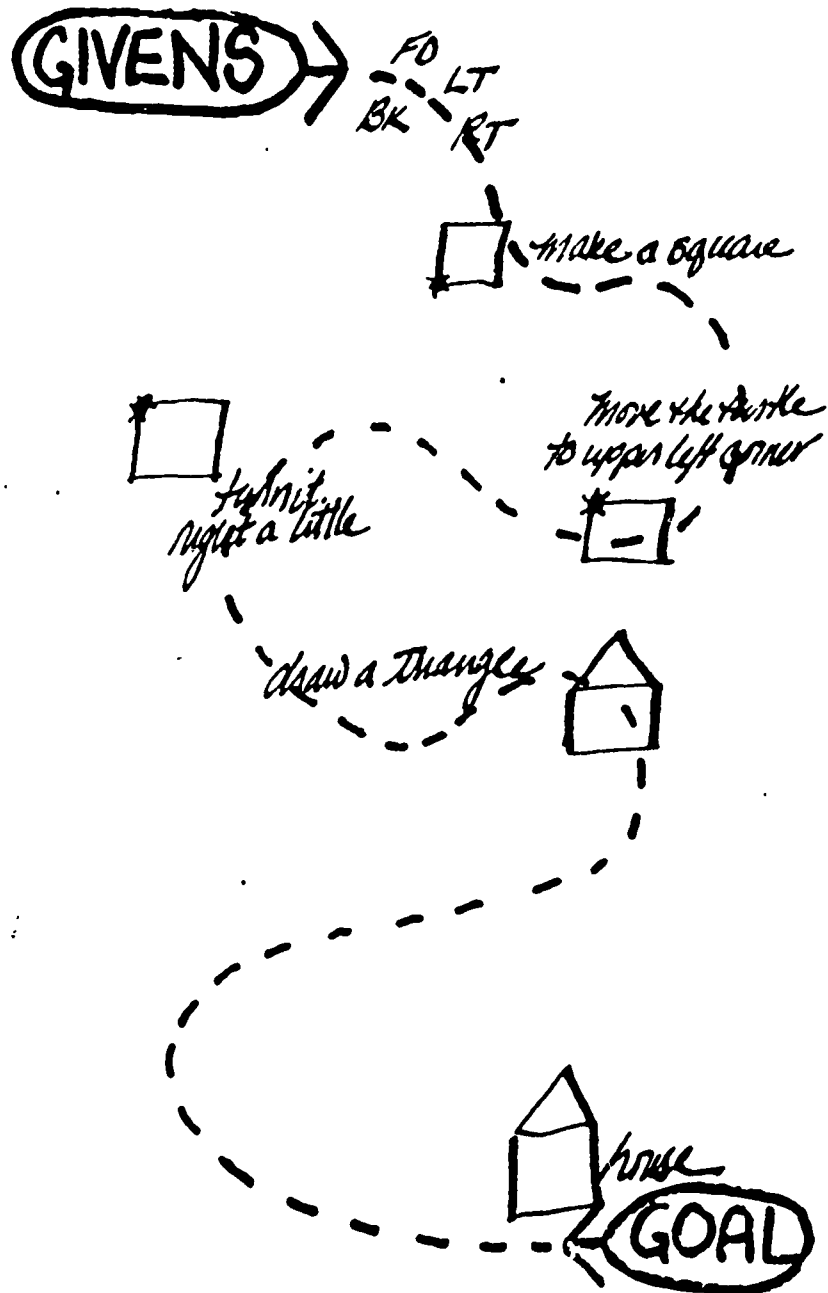 GIVENS
FD
LT
BK
RT
make a square
move the turtle
to upper left corner
turn it
right a little
draw a triangle
house
GOAL